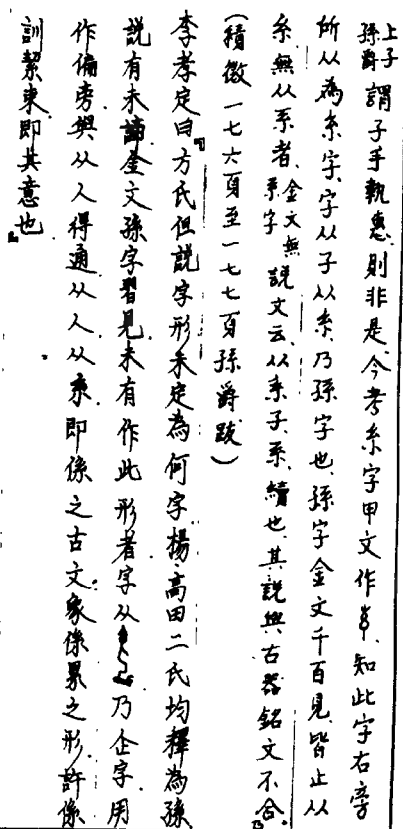 上子孫爵謂子手執惠則非是今考糸字甲文作𢆶知此字右旁
所从為糸字字从子从糸乃孫字也孫字金文千百見皆止从
糸無从系者金文無系字說文云从系子系續也其說與古器銘文不合
(積微一七六頁至一七七頁孫爵跋)
李孝定曰方氏但說字形未定為何字楊高田二氏均釋為孫
說有未諦金文孫字習見未有作此形者字从乃企字用
作偏旁與从人得通从人从系即係之古文象係累之形許係
訓絜束即其意也